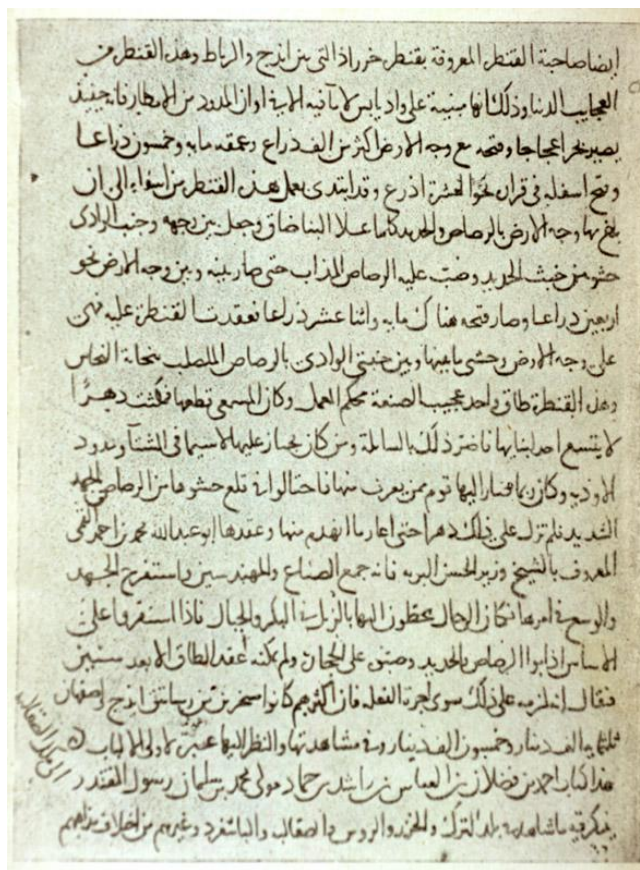 ايضا صاحبة القنطرة المعروفة بقنطرة خرزاذ التي بين ايذج والرباط وهذه القنطرة من
العجايب الدنيا وذلك انها مبنية على واد يابس لا ما فيه الا في اوان المدود من الامطار فانه حينيذ
يصير بحرا عجاجا وفتحه مع وجه الارض اكثر من الف ذراع وعمقه مايه وخمسون ذراعا
وفتح اسفله في قراره نحو العشرة اذرع وقد ابتدى بعمل هذه القنطرة من اسفله الى ان
بلغ بها وجه الارض بالرصاص والحديد كلما علا البنا ضاق وجعل بين وجهه وجنب الوادي
حشو من خبث الحديد وصب عليه الرصاص المذاب حتى صار بينه وبين وجه الارض نحو
اربعين ذراعا وصار فتحه هناك مايه واثنا عشر ذراعا فعقدت القنطرة عليه فهى
على وجه الارض وحشى ما بينها وبين جنبتي الوادي بالرصاص المصلب بنحاتة النحاس
وهذه القنطرة طاق واحد عجيب الصنعة محكم العمل وكان المسمعي قطعها فمكثت دهرا
لا يتسع احد لبنايها فاضر ذلك بالسابلة ومن كان يجتاز عليها لا سيما في الشتا ومدود
الاوديه وكان ربما صار اليها قوم ممن يقرب منها فاحتالوا في قلع حشوها من الرصاص بالجهد
الشديد فلم تزل على ذلك دهرا حتى اعاد ما انهدم منها وعقدها ابو عبد الله محمد بن احمد القمي
المعروف بالشيخ وزير الحسن البويه فانه جمع الصناع والمهندسين واستفرغ الجهد
والوسع في امرها فكان الرجال يحطون اليها بالزبل في البكر والحبال فاذا استقروا على
الاساس اذابوا الرصاص والحديد وصبوه على الحجارة ولم يمكنه عقد الطاق الا بعد سنتين
فيقال انه لزمه على ذلك سوى اجرة الفعلة فان اكثرهم كانوا مسخرين من رساتيق ايذج واصفهان
ثلثمايه الف دينار وخمسون الف دينار وفي مشاهدتها والنظر اليها عبرة لاولي الالباب
هذا كتاب احمد بن فضلان بن العباس بن راشد بن حماد مولى محمد بن سلمان رسول المقتدر
الى ملك الصقالبة
يذكر فيه ما شاهد في بلد الترك والخزر والروس والصقالبة والباشغرد وغيرهم من اختلاف مذاهبهم